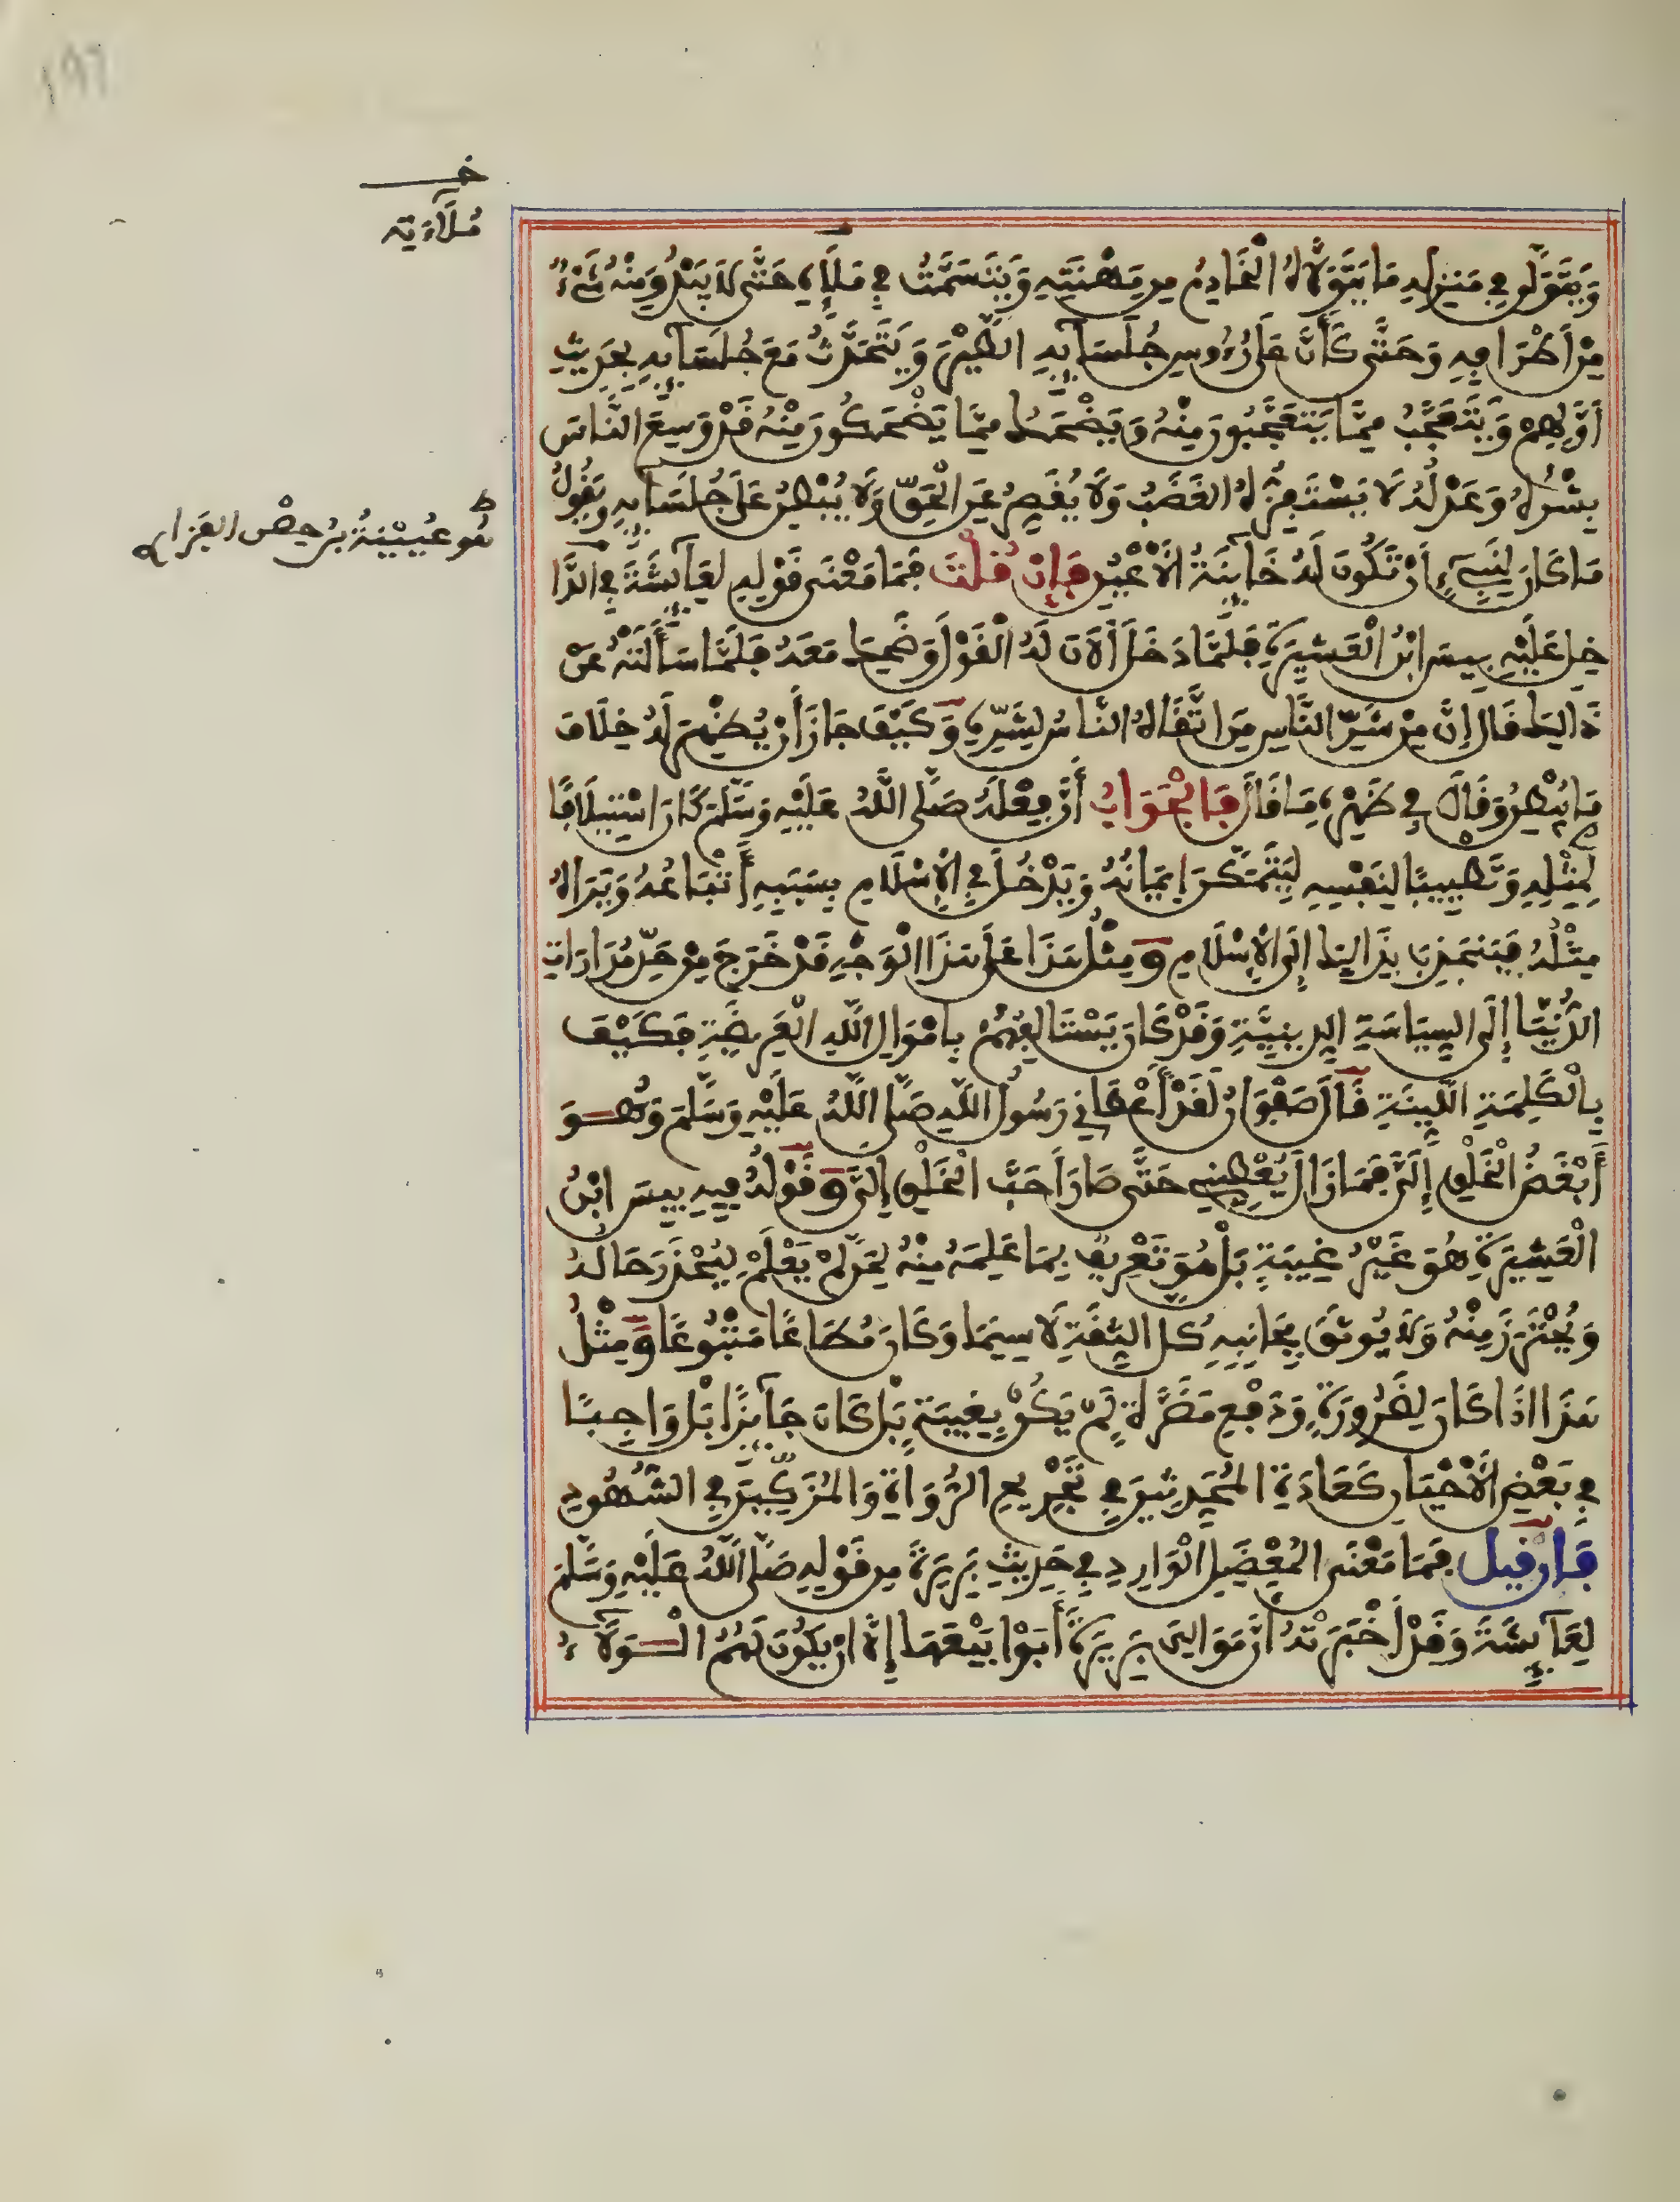 خـ
مُلَآءَتِهِ
وَيَتَوَلَّى فِي مَنْزِلِهِ مَا يَتَوَلَّاهُ الْخَادِمُ مِن مِهْنَتِهِ وَيَتَسَمَّتُ فِي مَلَإِهِ حَتَّى لَا يَبْدُوَ مِنْهُ شَيْءٌ
مِنْ أَطْرَافِهِ وَحَتَّى كَأَنَّ عَلَى رُءُوسِ جُلَسَآئِهِ الطَّيْرَ وَيَتَحَدَّثُ مَعَ جُلَسَآئِهِ بِحَدِيثِ
أَوَّلِهِمْ وَيَتَعَجَّبُ مِمَّا يَتَعَجَّبُونَ مِنْهُ وَيَضْحَكُ مِمَّا يَضْحَكُونَ مِنْهُ قَدْ وَسِعَ النَّاسَ
بِشْرُهُ وَعَدْلُهُ لَا يَسْتَفِزُّهُ الْغَضَبُ وَلَا يُقَصِّرُ عَنِ الْحَقِّ وَلَا يُبْطِنُ عَلَى جُلَسَآئِهِ وَيَقُولُ
هُو عُيَيْنَةُ بْنُ حِصْنٍ الفَزَارِي
مَا كَانَ لِنَبِيءٍ أَنْ تَكُونَ لَهُ خَآئِنَةُ الْأَعْيُنِ فَإِنْ قُلْتَ فَمَا مَعْنَى قَوْلِهِ لِعَآئِشَةَ فِي الدَّا
خِلِ عَلَيْهِ بِيسَ ابْنُ الْعَشِيرَةِ فَلَمَّا دَخَلَ أَلَانَ لَهُ الْقَوْلَ وَضَحِكَ مَعَهُ فَلَمَّا سَأَلَتْهُ عَنْ
ذَالِكَ قَالَ إِنَّ مِنْ شَرِّ النَّاسِ مَنِ اتَّقَاهُ النَّاسُ لِشَرِّهِ وَكَيْفَ جَازَ أَنْ يُظْهِرَ لَهُ خِلَافَ
مَا يُبْطِنُ وَقَالَ فِي ظَهْرِهِ مَا قَالَ فَالْجَوَابُ أَنَّ فِعْلَهُ صَلَّى اللَّهُ عَلَيْهِ وَسَلَّمَ كَانَ اسْتِيلَافًا
لِمِثْلِهِ وَتَطْيِيبًا لِنَفْسِهِ لِيَتَمَكَّنَ إِيمَانُهُ وَيَدْخُلَ فِي الْإِسْلَامِ بِسَبَبِهِ أَتْبَاعُهُ وَيَرَاهُ
مِثْلُهُ فَيَنْجَذِبَ بِذَالِكَ إِلَى الْإِسْلَامِ وَمِثْلُ هَذَا عَلَى هَذَا الْوَجْهِ قَدْ خَرَجَ مِنْ حَدِّ مُدَارَاتِ
الدُّنْيَا إِلَى السِّيَاسَةِ الدِّينِيَّةِ وَقَدْ كَانَ يَسْتَالِفُهُمْ بِأَمْوَالِ اللَّهِ الْعَرِيضَةِ فَكَيْفَ
بِالْكَلِمَةِ اللَّيِّنَةِ قَالَ صَفْوَانُ لَقَدْ أَعْطَانِي رَسُولُ اللَّهِ صَلَّى اللَّهُ عَلَيْهِ وَسَلَّمَ وَهُوَ
أَبْغَضُ الْخَلْقِ إِلَيَّ فَمَا زَالَ يُعْطِينِي حَتَّى صَارَ أَحَبَّ الْخَلْقِ إِلَيَّ وَقَوْلُهُ فِيهِ بِيسَ ابْنُ
الْعَشِيرَةِ هُوَ غَيْرُ غِيبَةٍ بَلْ هُوَ تَعْرِيفٌ بِمَا عَلِمَهُ مِنْهُ لِمَن لَّمْ يَعْلَمْ لِيُحْذَرَ حَالُهُ
وَيُحْتَرَزَ مِنْهُ وَلَا يُوثَقَ بِجَانِبِهِ كُلَّ الثِّقَةِ لَا سِيَمَا وَكَانَ مُطَاعًا مَتْبُوعًا وَمِثْلُ
هَذَا إِذَا كَانَ لِضَرُورَةٍ وَدَفْعِ مَضَرَّةٍ لَمْ يَكُنْ بِغِيبَةٍ بَلْ كَانَ جَآئِزًا بَلْ وَاجِبًا
فِي بَعْضِ الْأَحْيَانِ كَعَادَةِ الْمُحَدِّثِينَ فِي تَجْرِيحِ الرُّوَاةِ وَالْمُزَكِّينَ فِي الشُّهُودِ
فَإِن قِيلَ فَمَا مَعْنَى الْمُعْضِلِ الْوَارِدِ فِي حَدِيثِ بَرِيرَةَ مِن قَوْلِهِ صَلَّى اللَّهُ عَلَيْهِ وَسَلَّمَ
لِعَآئِشَةَ وَقَدْ أَخْبَرَتْهُ أَنَّ مَوَالِيَ بَرِيرَةَ أَبَوْا بَيْعَهَا إِلَّا أَنْ يَكُونَ لَهُمُ الْوَلَآءُ